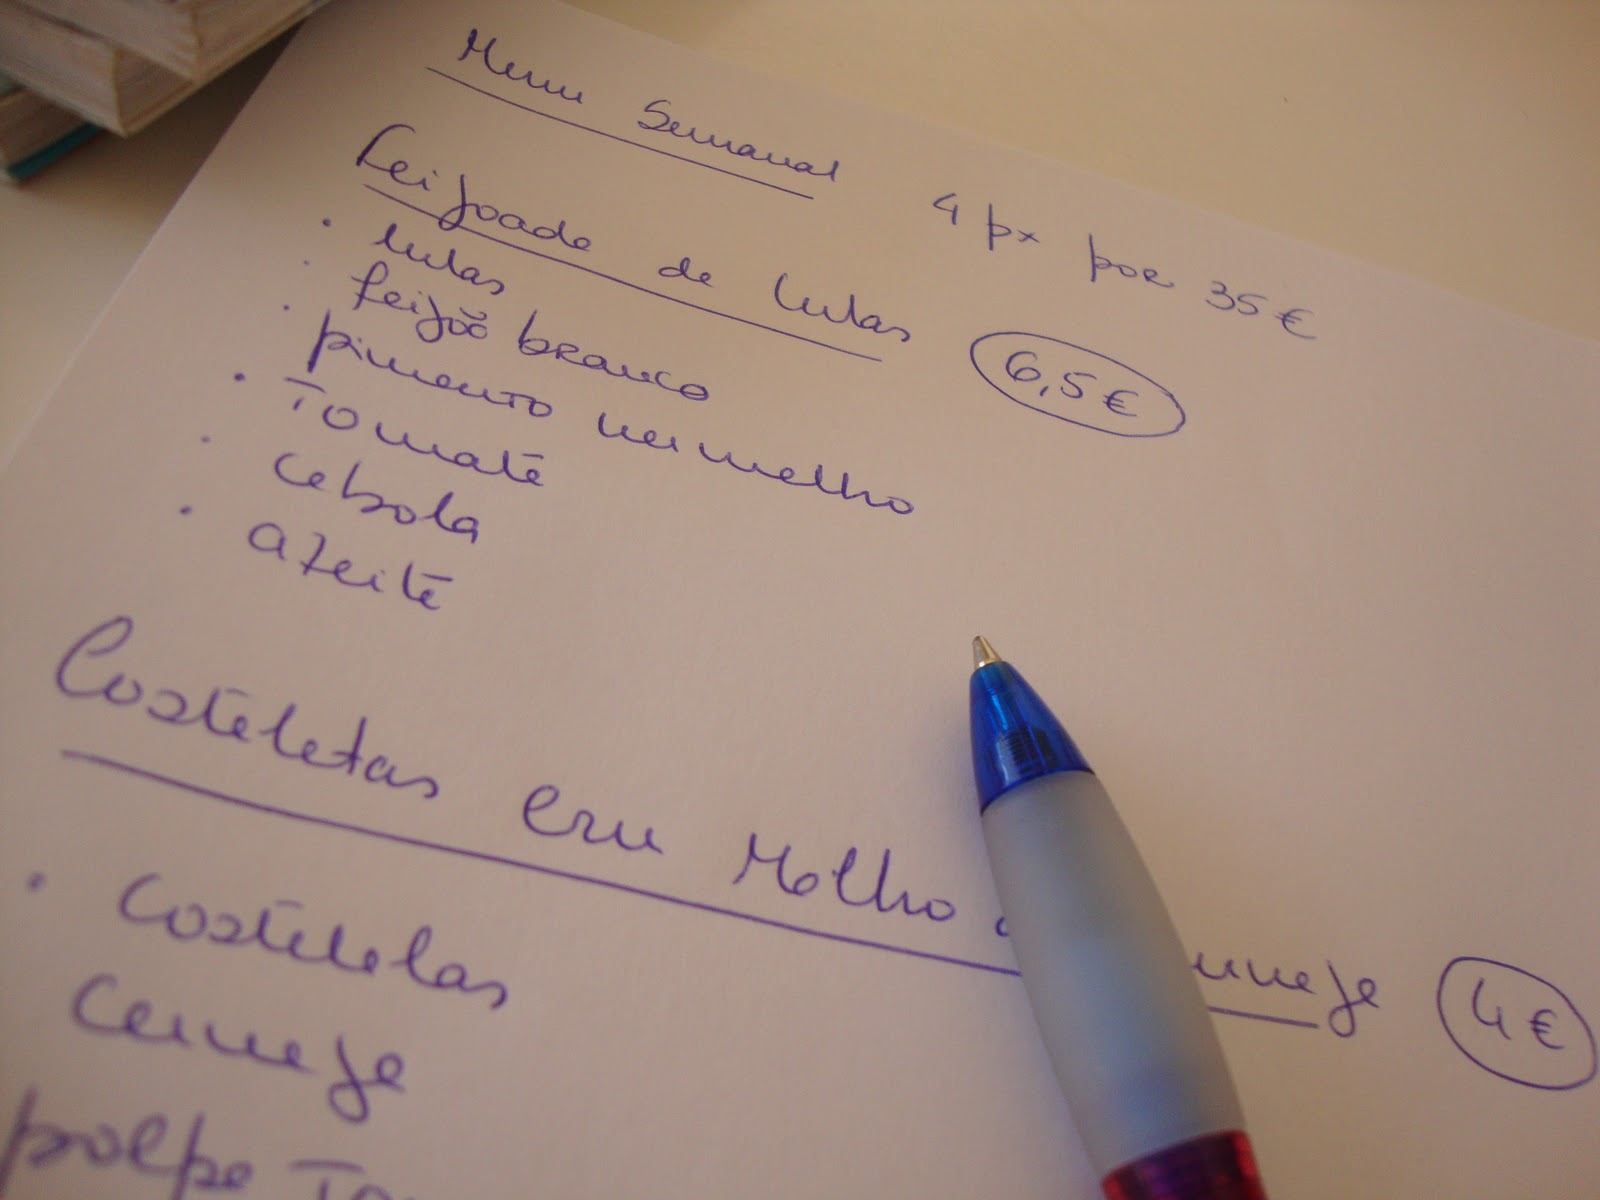 Menu Semanal 4 px por 35€
Feijoada de lulas 6,5€
• lulas
• feijão branco
• pimento vermelho
• Tomate
• cebola
• azeite
Costeletas em Molho
4€
• costeletas
cerveja
polpa